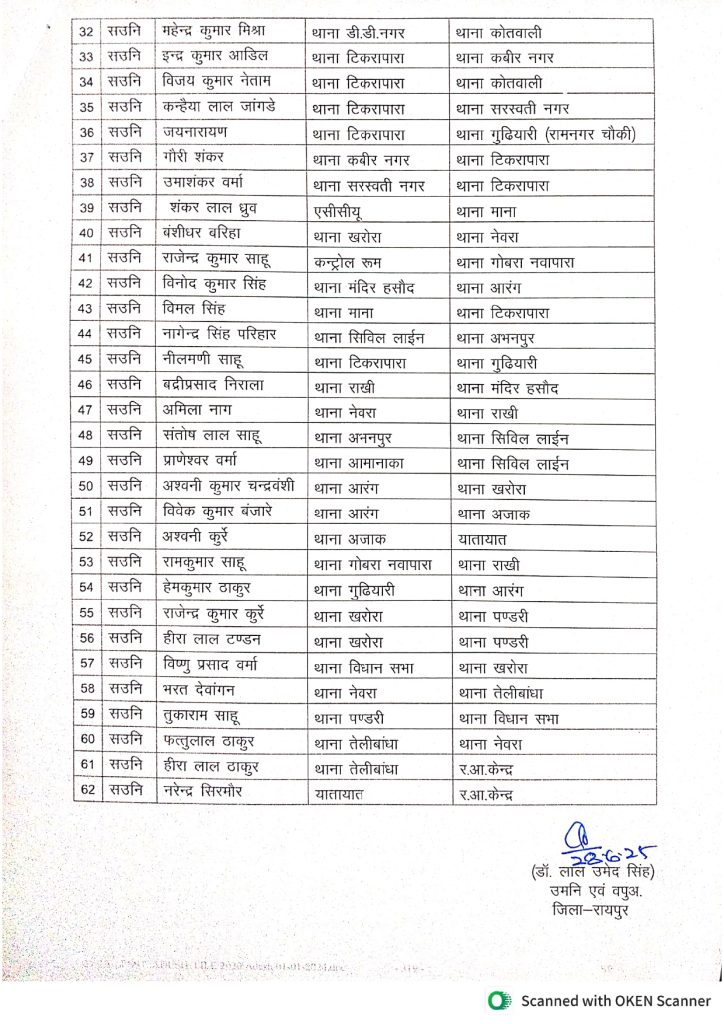 32 सउनि महेन्द्र कुमार मिश्रा थाना डी.डी.नगर थाना कोतवाली
33 सउनि इन्द्र कुमार आडिल थाना टिकरापारा थाना कबीर नगर
34 सउनि विजय कुमार नेताम थाना टिकरापारा थाना कोतवाली
35 सउनि कन्हैया लाल जांगडे थाना टिकरापारा थाना सरस्वती नगर
36 सउनि जयनारायण थाना टिकरापारा थाना गुढियारी (रामनगर चौकी)
37 सउनि गौरी शंकर थाना कबीर नगर थाना टिकरापारा
38 सउनि उमाशंकर वर्मा थाना सरस्वती नगर थाना टिकरापारा
39 सउनि शंकर लाल ध्रुव एसीसीयू थाना माना
40 सउनि बंशीधर बरिहा थाना खरोरा थाना नेवरा
41 सउनि राजेन्द्र कुमार साहू कन्ट्रोल रूम थाना गोबरा नवापारा
42 सउनि विनोद कुमार सिंह थाना मंदिर हसौद थाना आरंग
43 सउनि विमल सिंह थाना माना थाना टिकरापारा
44 सउनि नागेन्द्र सिंह परिहार थाना सिविल लाईन थाना अभनपुर
45 सउनि नीलमणी साहू थाना टिकरापारा थाना गुढियारी
46 सउनि बद्रीप्रसाद निराला थाना राखी थाना मंदिर हसौद
47 सउनि अमिला नाग थाना नेवरा थाना राखी
48 सउनि संतोष लाल साहू थाना अभनपुर थाना सिविल लाईन
49 सउनि प्राणेश्वर वर्मा थाना आमानाका थाना सिविल लाईन
50 सउनि अश्वनी कुमार चन्द्रवंशी थाना आरंग थाना खरोरा
51 सउनि विवेक कुमार बंजारे थाना आरंग थाना अजाक
52 सउनि अश्वनी कुर्रे थाना अजाक यातायात
53 सउनि रामकुमार साहू थाना गोबरा नवापारा थाना राखी
54 सउनि हेमकुमार ठाकुर थाना गुढियारी थाना आरंग
55 सउनि राजेन्द्र कुमार कुर्रे थाना खरोरा थाना पण्डरी
56 सउनि हीरा लाल टण्डन थाना खरोरा थाना पण्डरी
57 सउनि विष्णु प्रसाद वर्मा थाना विधान सभा थाना खरोरा
58 सउनि भरत देवांगन थाना नेवरा थाना तेलीबांधा
59 सउनि तुकाराम साहू थाना पण्डरी थाना विधान सभा
60 सउनि फत्तुलाल ठाकुर थाना तेलीबांधा थाना नेवरा
61 सउनि हीरा लाल ठाकुर थाना तेलीबांधा र.आ.केन्द्र
62 सउनि नरेन्द्र सिरमौर यातायात र.आ.केन्द्र
28.6.25
(डॉ. लाल उमेद सिंह)
उमनि एवं वपुअ.
जिला–रायपुर
Scanned with OKEN Scanner